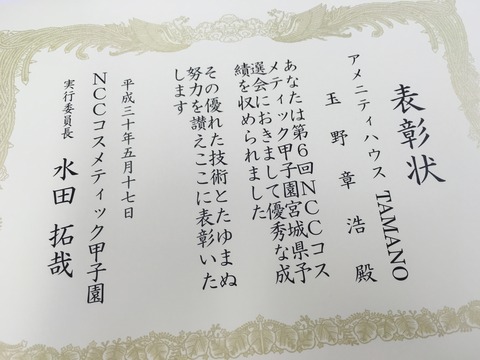 表彰状
アメニティハウス TAMANO
玉野章浩 殿
あなたは第6回NCCコス
メティック甲子園宮城県予
選会におきまして優秀な成
績を収められました
その優れた技術とたゆまぬ
努力を讃えここに表彰いた
します
平成三十年五月十七日
NCCコスメティック甲子園
実行委員長 水田拓哉